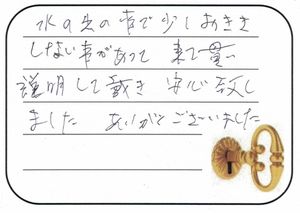 水の出の事で少しおきき
しない事があって 来て貰い
説明して戴き 安心致し
ました ありがとございました